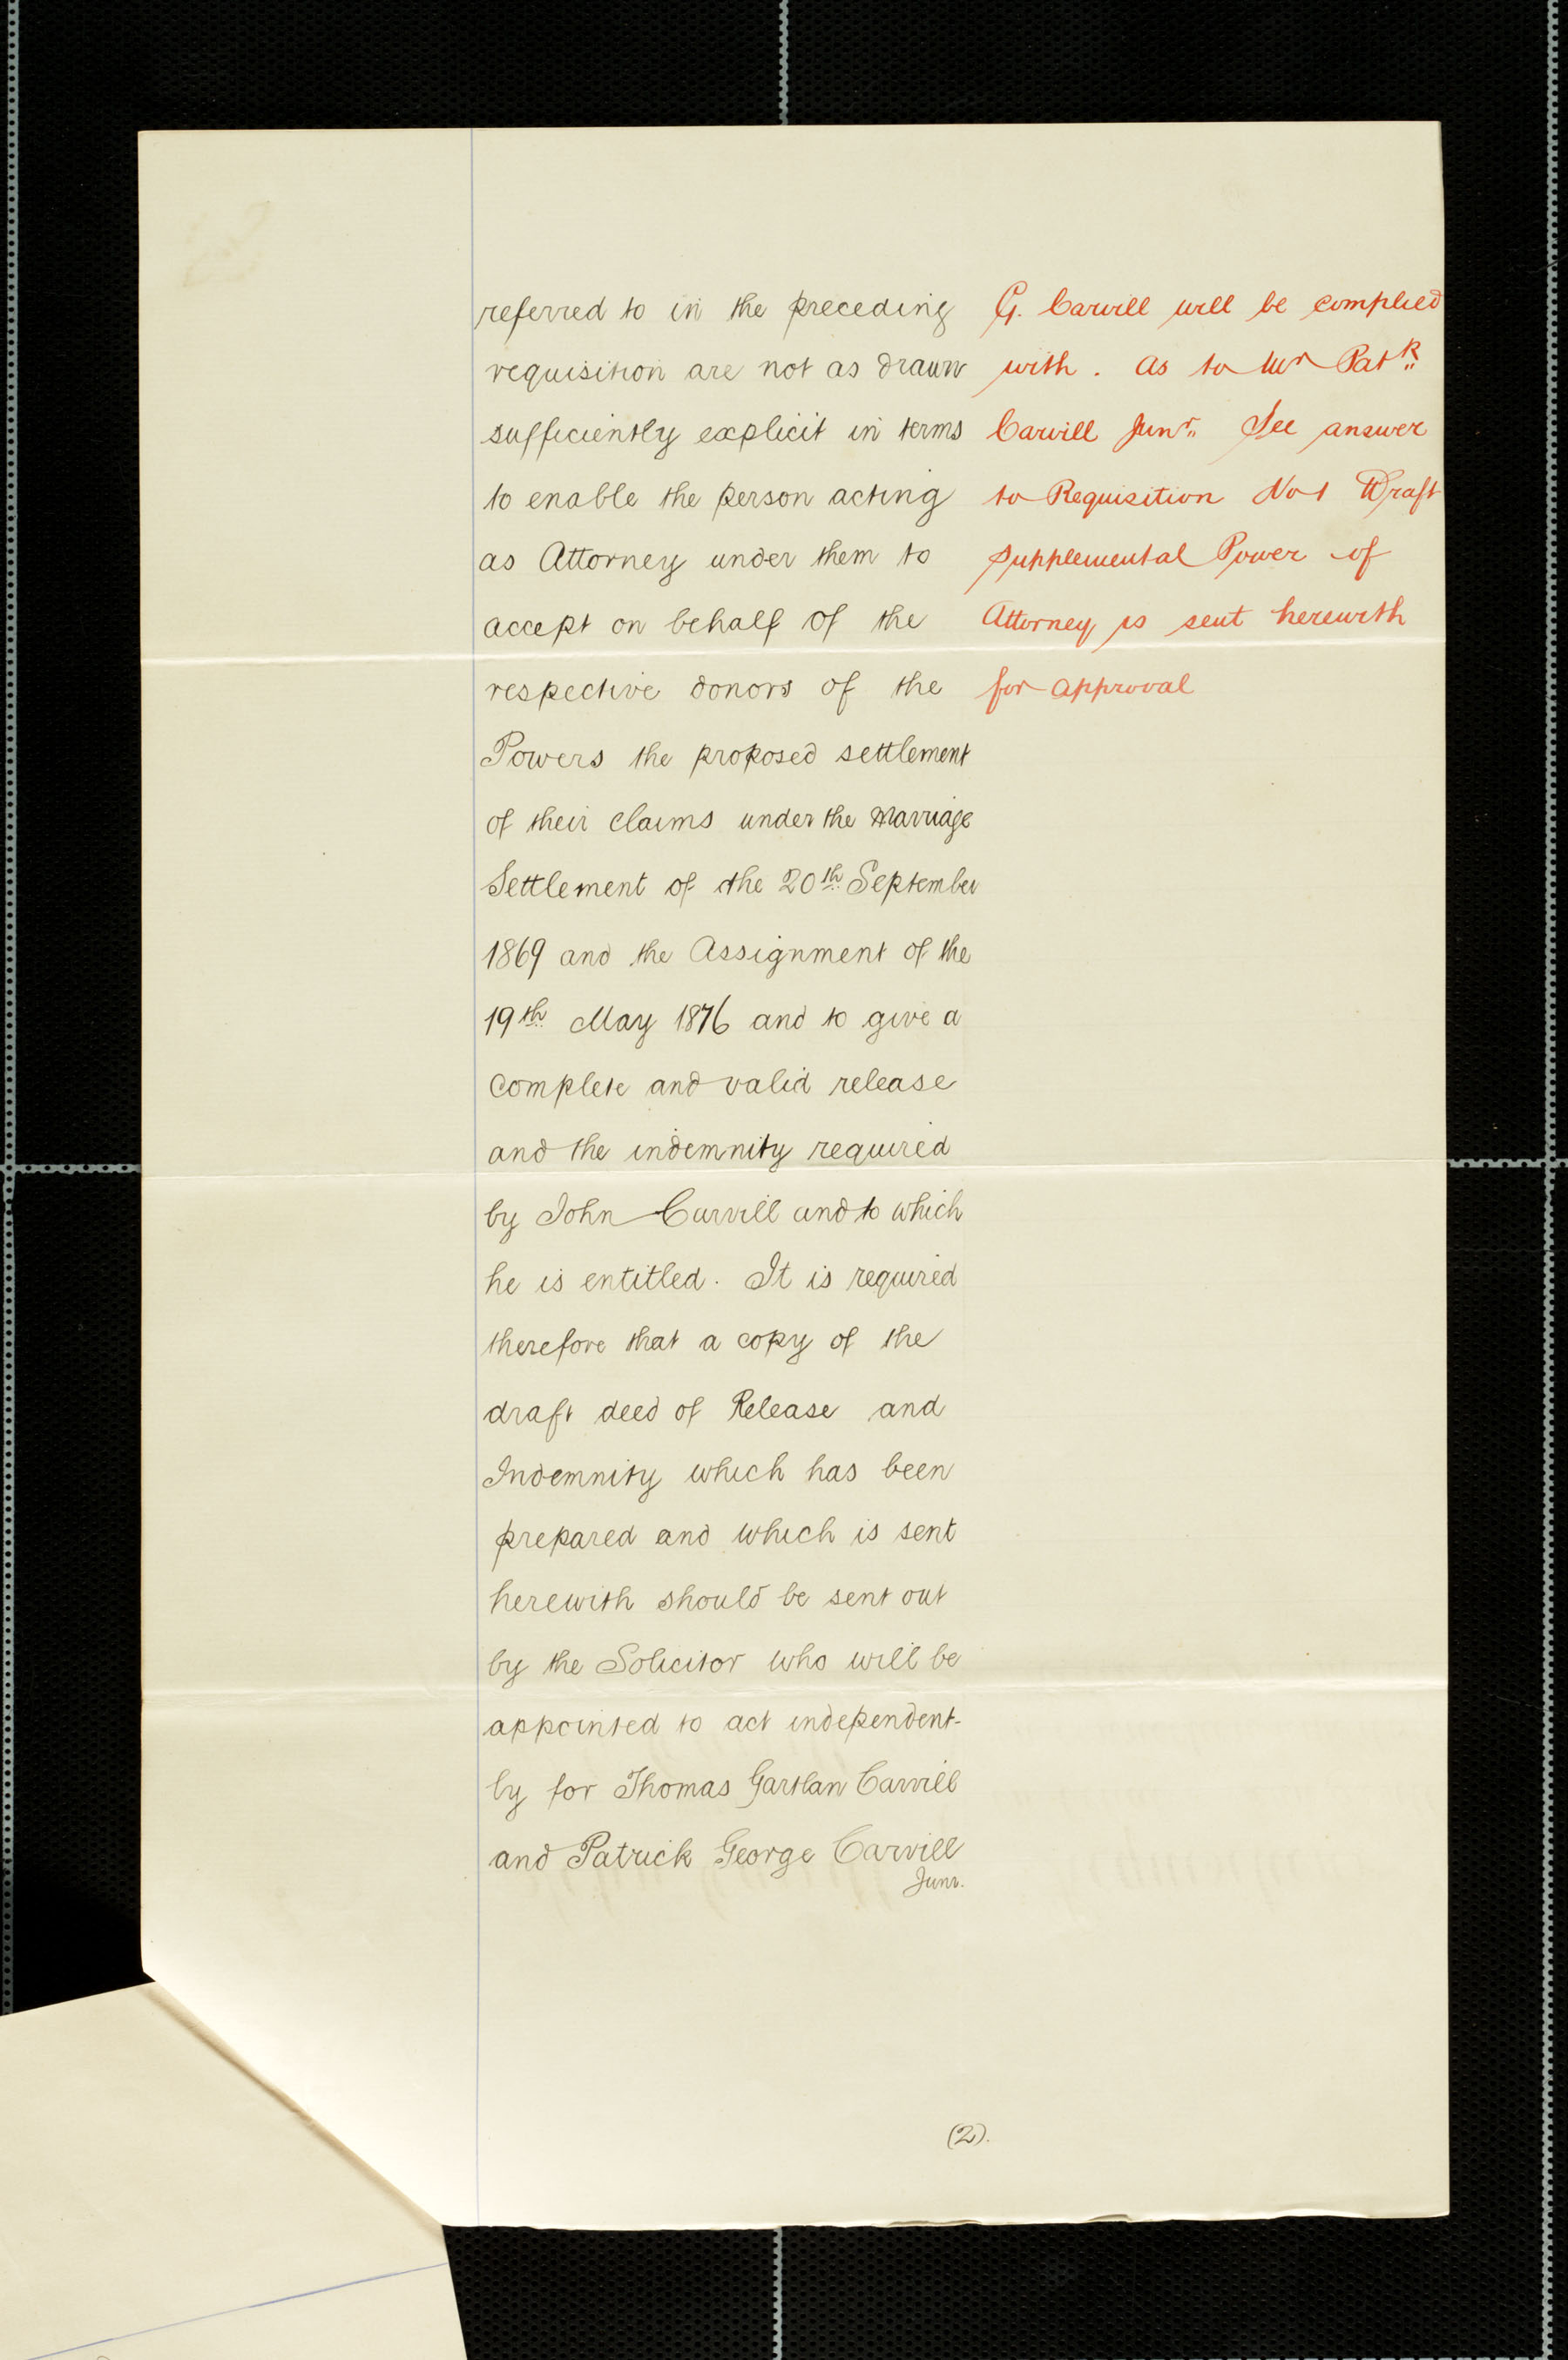 referred to in the preceding
requisition are not as drawn
sufficiently explicit in terms
to enable the person acting
as Attorney under them to
accept on behalf of the
respective donors of the
Powers the proposed settlement
of their claims under the Marriage
Settlement of the 20th September
1869 and the Assignment of the
19th May 1876 and to give a
complete and valid release
and the indemnity required
by John Carvill and to which
he is entitled. It is required
therefore that a copy of the
draft deed of Release and
Indemnity which has been
prepared and which is sent
herewith should be sent out
by the Solicitor who will be
appointed to act independent-
ly for Thomas Gartlan Carvill
and Patrick George Carvill
Junr.
G. Carvill will be complied
with. As to Mr Patk
Carvill Junr. See answer
to Requisition No 1 Draft
supplemental Power of
Attorney is sent herewith
for approval
(2).